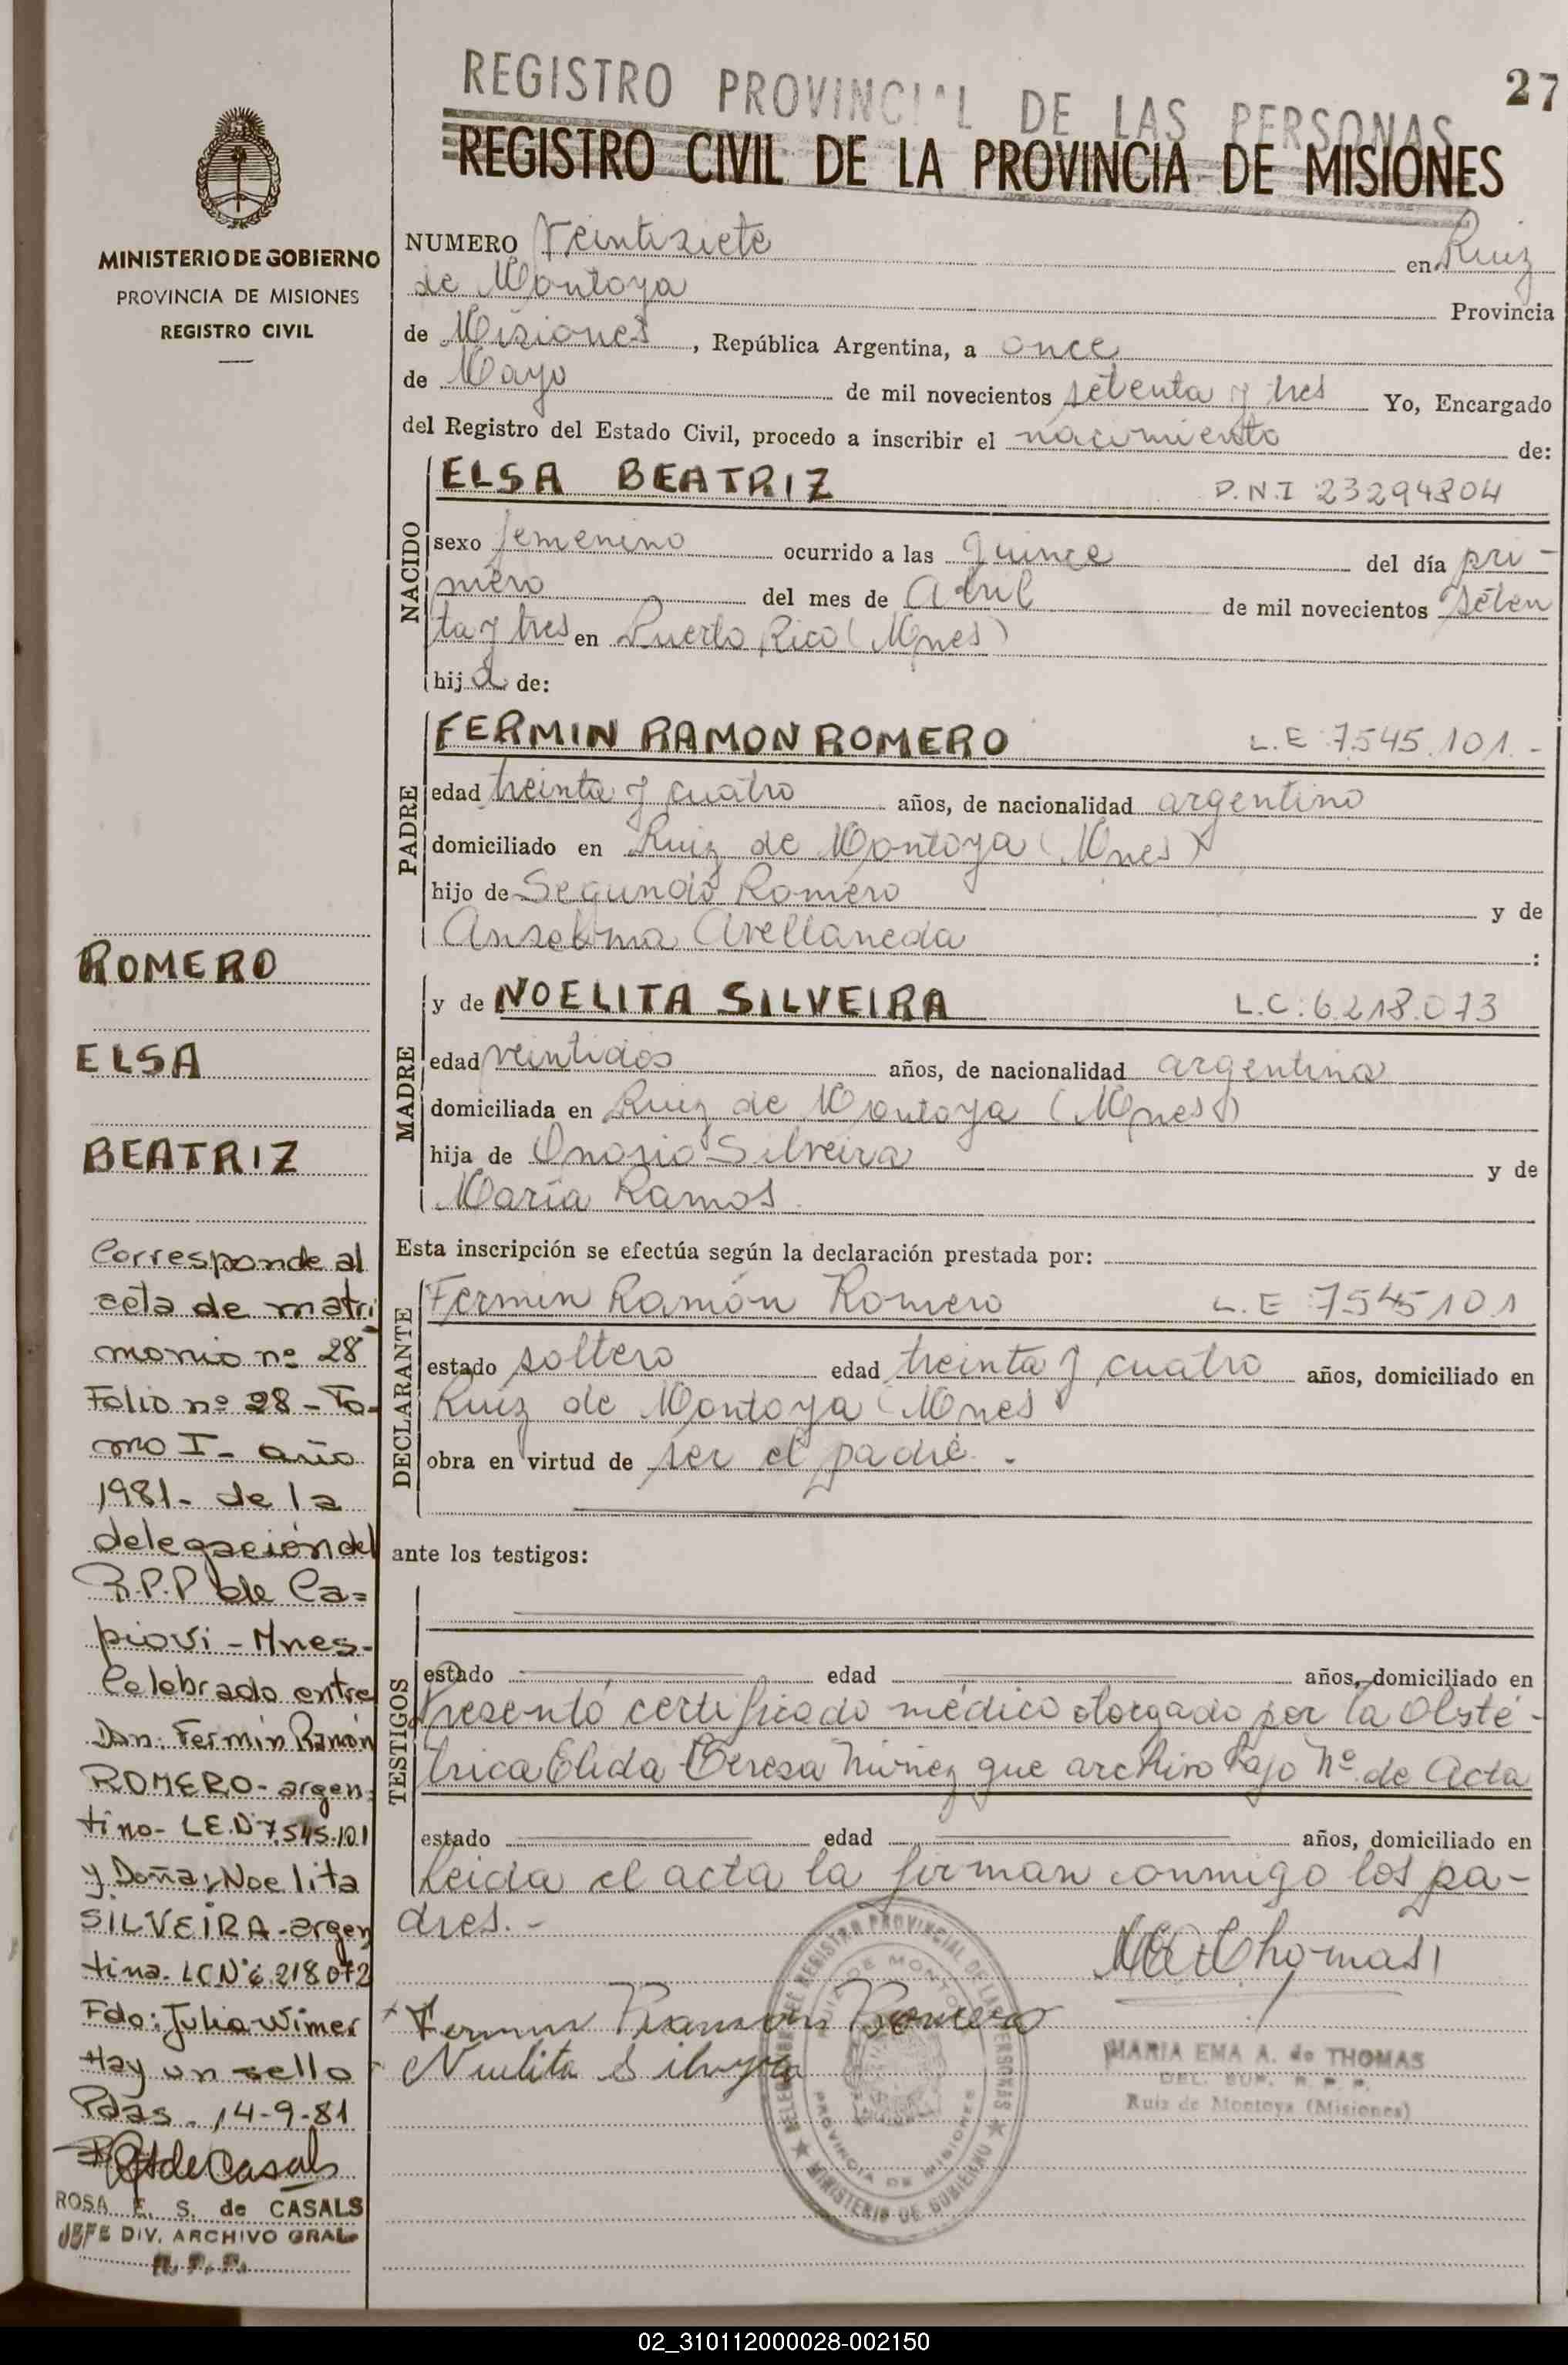 27
REGISTRO PROVINCIAL DE LAS PERSONAS
REGISTRO CIVIL DE LA PROVINCIA DE MISIONES
MINISTERIO DE GOBIERNO
PROVINCIA DE MISIONES
REGISTRO CIVIL
NUMERO Veintisiete en Ruiz
de Montoya Provincia
de Misiones, República Argentina, a once
de Mayo de mil novecientos setenta y tres Yo, Encargado
del Registro del Estado Civil, procedo a inscribir el nacimiento de:
NACIDO
ELSA BEATRIZ D.N.I 23294804
sexo femenino ocurrido a las quince del día pri-
mero del mes de Abril de mil novecientos seten
ta y tres en Puerto Rico (Mnes)
hija de:
PADRE
FERMIN RAMON ROMERO L.E 7.545.101.-
edad treinta y cuatro años, de nacionalidad argentino
domiciliado en Ruiz de Montoya (Mnes)
hijo de Segundo Romero y de
Anselma Arellaneda :
MADRE
y de NOELITA SILVEIRA L.C: 6.218.073
edad veintidos años, de nacionalidad argentina
domiciliada en Ruiz de Montoya (Mnes)
hija de Onosio Silveira y de
María Ramos.
Esta inscripción se efectúa según la declaración prestada por:
DECLARANTE
Fermin Ramón Romero L.E 7545101
estado soltero edad treinta y cuatro años, domiciliado en
Ruiz de Montoya (Mnes
obra en virtud de ser el padre.-
ante los testigos:
TESTIGOS
estado edad años, domiciliado en
Presentó certificado médico otorgado por la Obsté-
trica Elida Teresa Núñez que archivo bajo Nº de Acta
estado edad años, domiciliado en
Leida el acta la firman conmigo los pa-
dres.-
Thomas
Fermin Ramon Romero
Noelita Silveyra
MARIA EMA A. de THOMAS
DEL. SUP. R. P. P.
Ruiz de Montoya (Misiones)
REGISTRO PROVINCIAL DE LAS PERSONAS
RUIZ DE MONTOYA
PROVINCIA DE MISIONES
MINISTERIO DE GOBIERNO
ROMERO
ELSA
BEATRIZ
Corresponde al
acta de matri
monio nº 28
Folio nº 28 - To-
mo I- año
1981- de la
delegación del
R.P.P de Ca=
piovi - Mnes-
Celebrado entre
Don: Fermín Ramón
ROMERO- argen=
tino- L.E.Nº 7.545.101
y Doña: Noelita
SILVEIRA - argen
tina- LCNº 6.218.072
Fdo: Julia Wimer
Hay un sello
Pdas. 14-9-81
de Casals
ROSA E. S. de CASALS
JEFE DIV. ARCHIVO GRAL.
R.P.P.
02_310112000028-002150